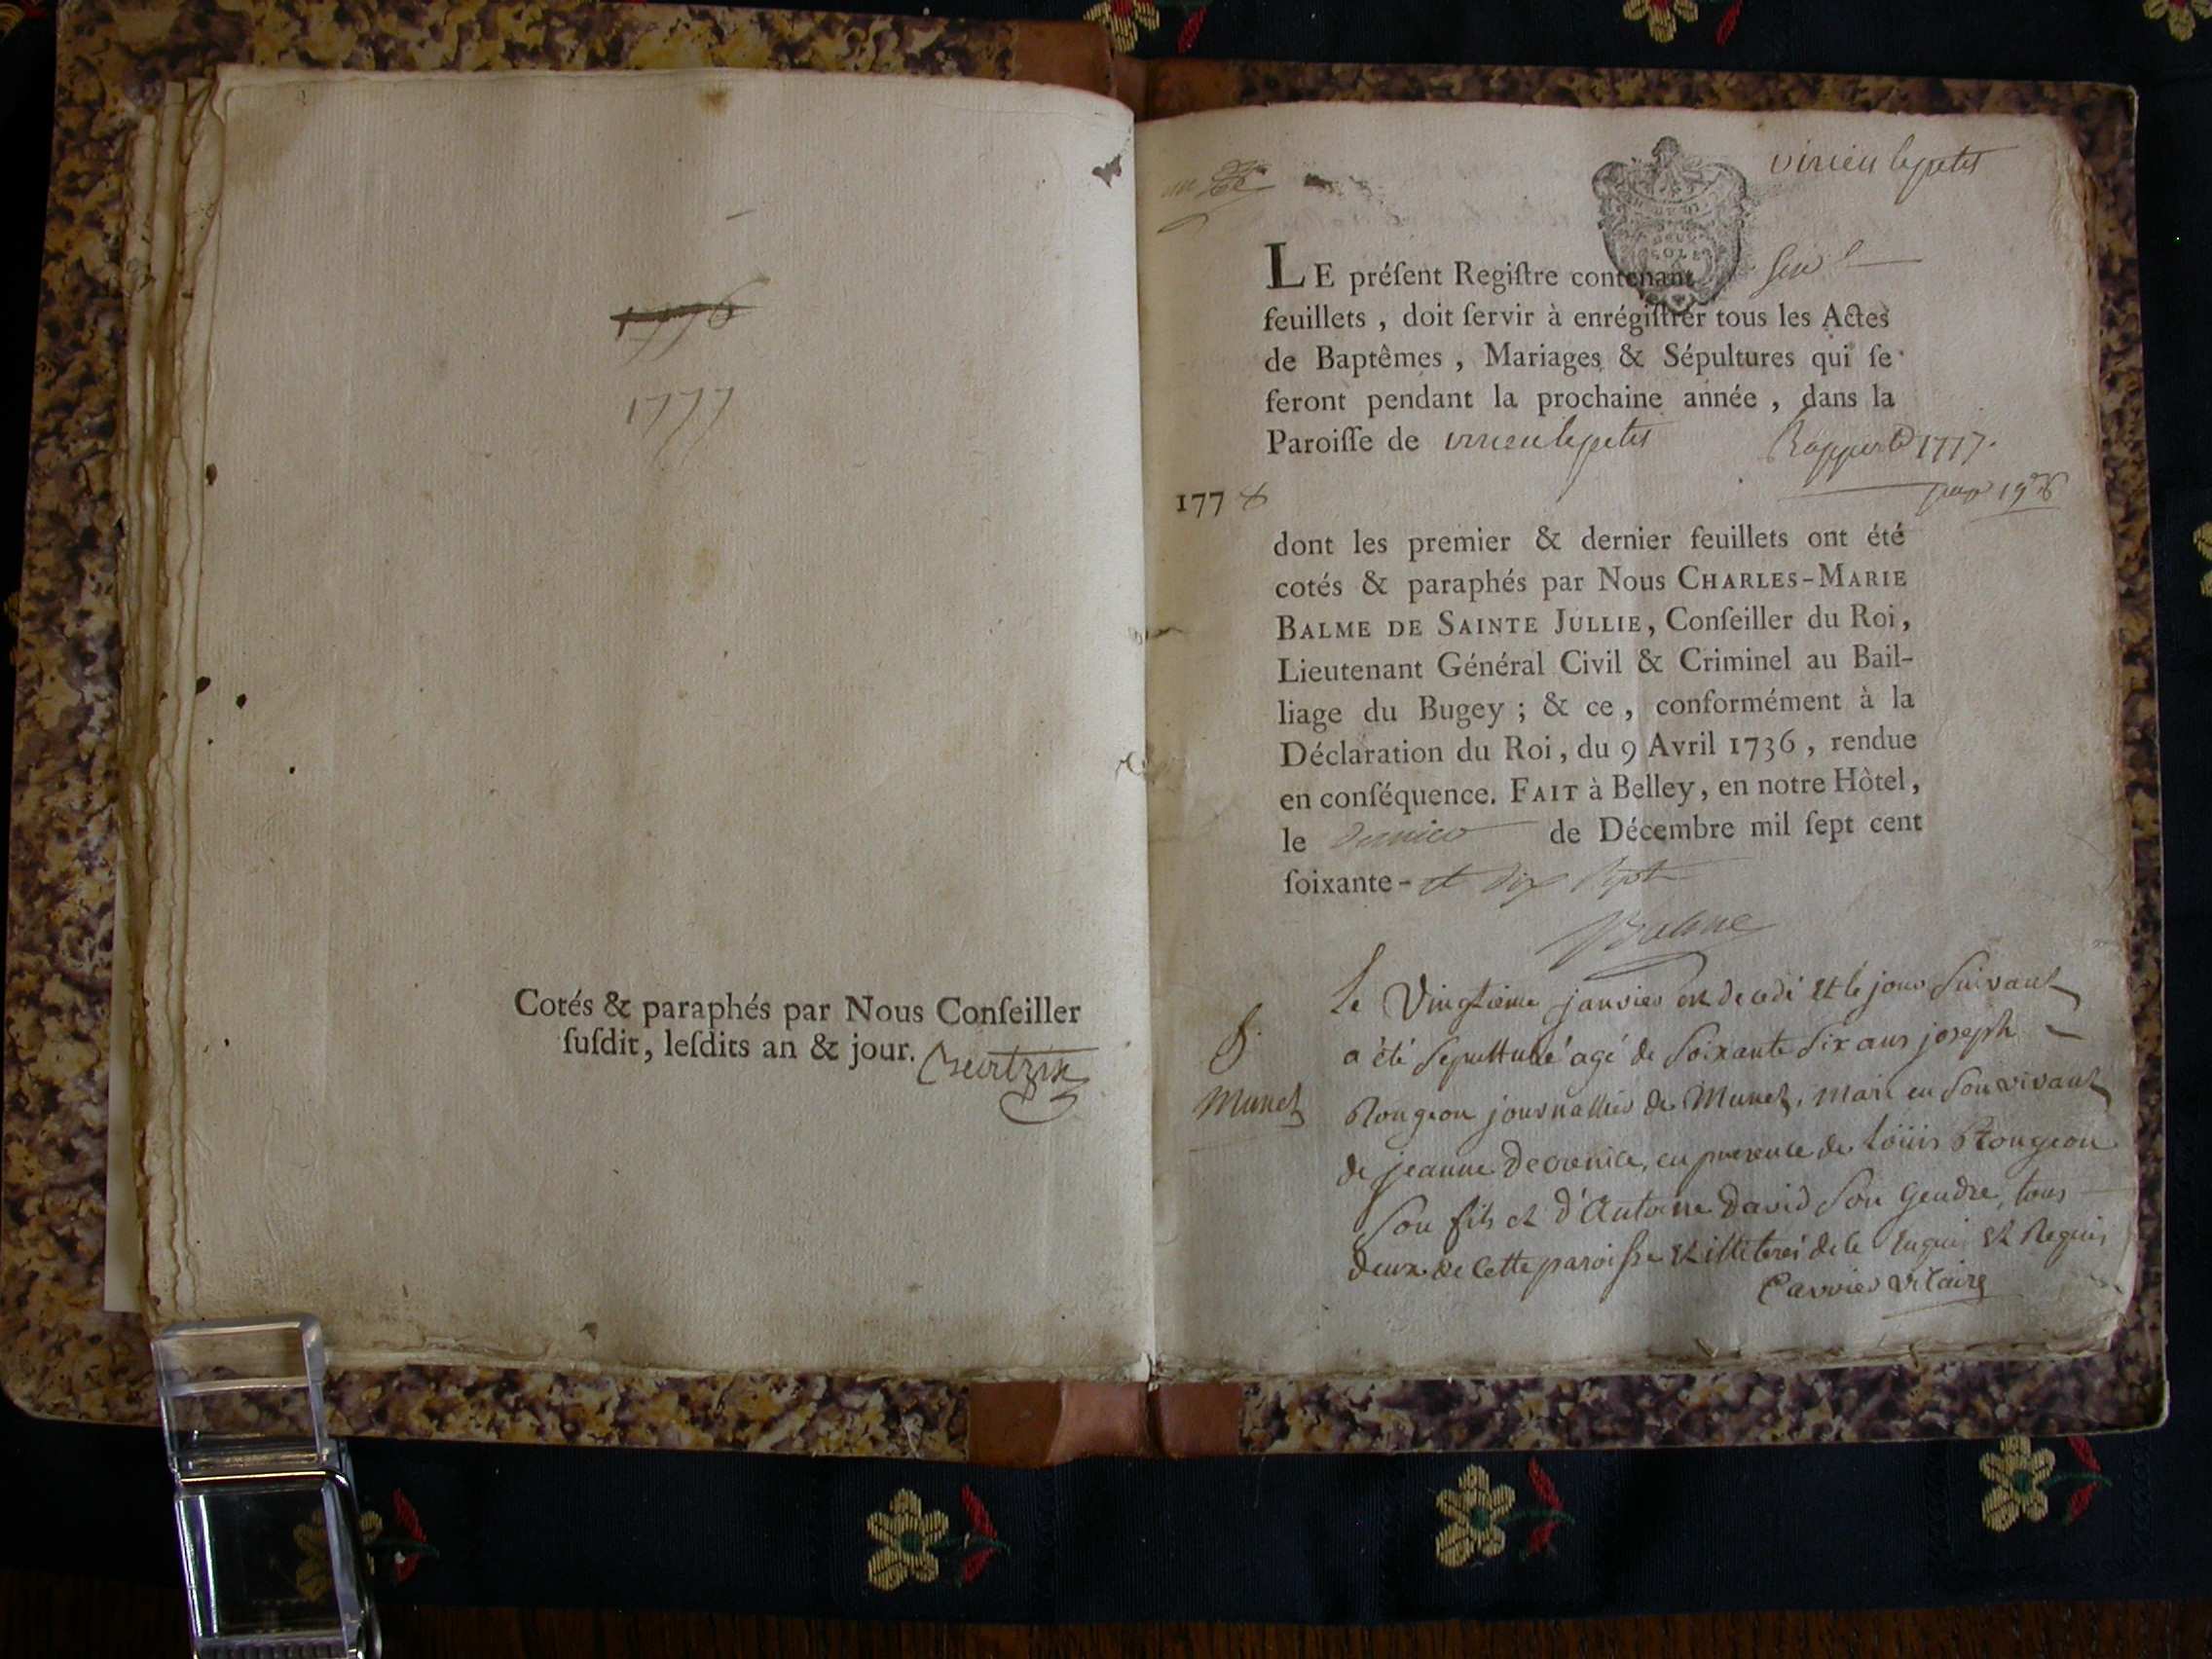 1776
1777
Cotés & paraphés par Nous Conſeiller
ſuſdit, leſdits an & jour.
virieu le petit
LE préſent Regiſtre contenant
feuillets, doit ſervir à enrégiſtrer tous les Actes
de Baptêmes, Mariages & Sépultures qui ſe
feront pendant la prochaine année, dans la
Paroiſſe de virieu le petit
1777.
1778
dont les premier & dernier feuillets ont été
cotés & paraphés par Nous CHARLES-MARIE
BALME DE SAINTE JULLIE, Conſeiller du Roi,
Lieutenant Général Civil & Criminel au Bail-
liage du Bugey ; & ce, conformément à la
Déclaration du Roi, du 9 Avril 1736, rendue
en conſéquence. FAIT à Belley, en notre Hòtel,
le dernier de Décembre mil ſept cent
ſoixante- et dix sept
Balme
Le Vingtieme janvier est decedé et le jour suivant
a été sepulturé agé de soixante six ans joseph
S.
Munet
Rougeon journallier de Munet, mari en son vivant
de jeanne en presence de loüis Rougeon
son fils et d'Antoine David son gendre, tous
deux de cette paroisse et illiterés de ce enquis et Requis
Carrier vicaire